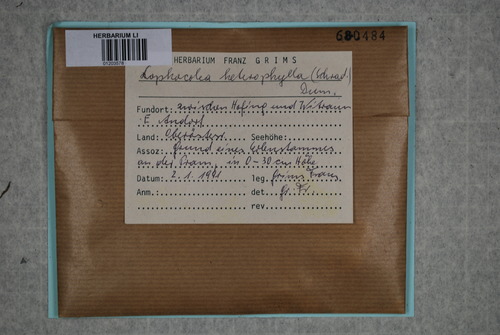 HERBARIUM LI
01203579
680484
HERBARIUM FRANZ GRIMS
Lophocolea heterophylla (Schrad.)
Dum.
Fundort: zwischen Hof und
E Andorf
Land: Oberösterr. Seehöhe:
Assoz: Grund eines Erlenstammes
an der Pram, in 0-30 cm Höhe
Datum: 2.1.1981 leg. Grims Franz
Anm.: det. Gr. Fr.
rev.